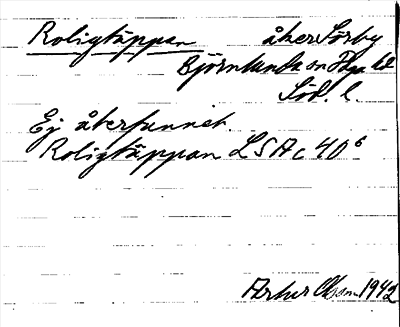 Roligtäppan åker Sörby
Björnlunda sn Daga hd
Söd. l.
Ej återfunnet.
Roligtäppan LSA c 40⁶
Artur Olsson 1942